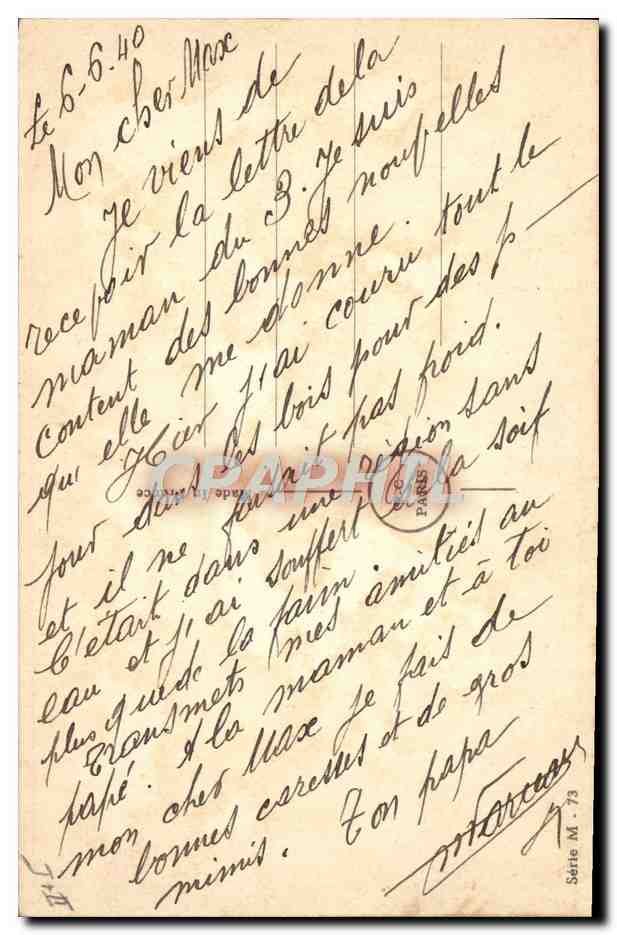 Le 6-6-40
Mon cher Max
Je viens de
recevoir la lettre de la
maman du 3. Je suis
content des bonnes nouvelles
qu'elle me donne.
Hier j'ai couru tout le
jour dans les bois pour des p—
et il ne faisait pas froid.
C'était dans une région sans
eau et j'ai souffert de la soif
plus que de la faim.
Transmets mes amitiés au
papé. A la maman et à toi
mon cher Max je fais de
bonnes caresses et de gros
mimis. Ton papa
Made in France
PARIS
CPAPHIL
Série M - 73